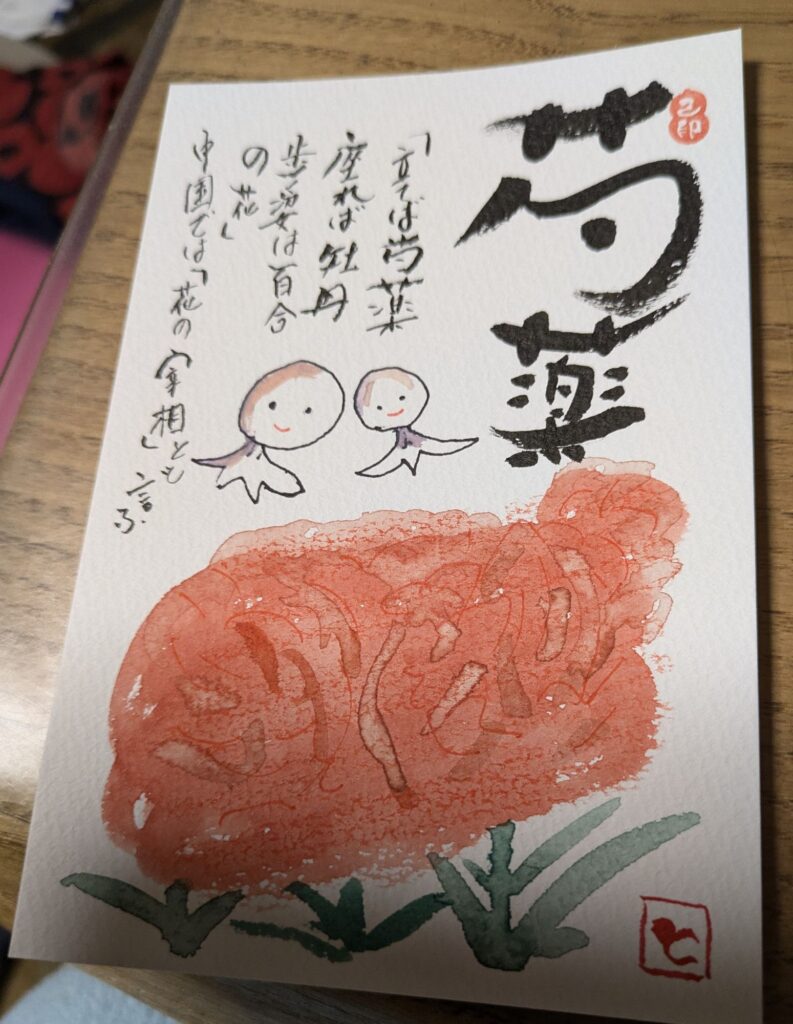 芍薬
「立てば芍薬
座れば牡丹
歩く姿は百合
の花」
中国では「花の宰相」とも言ふ
と